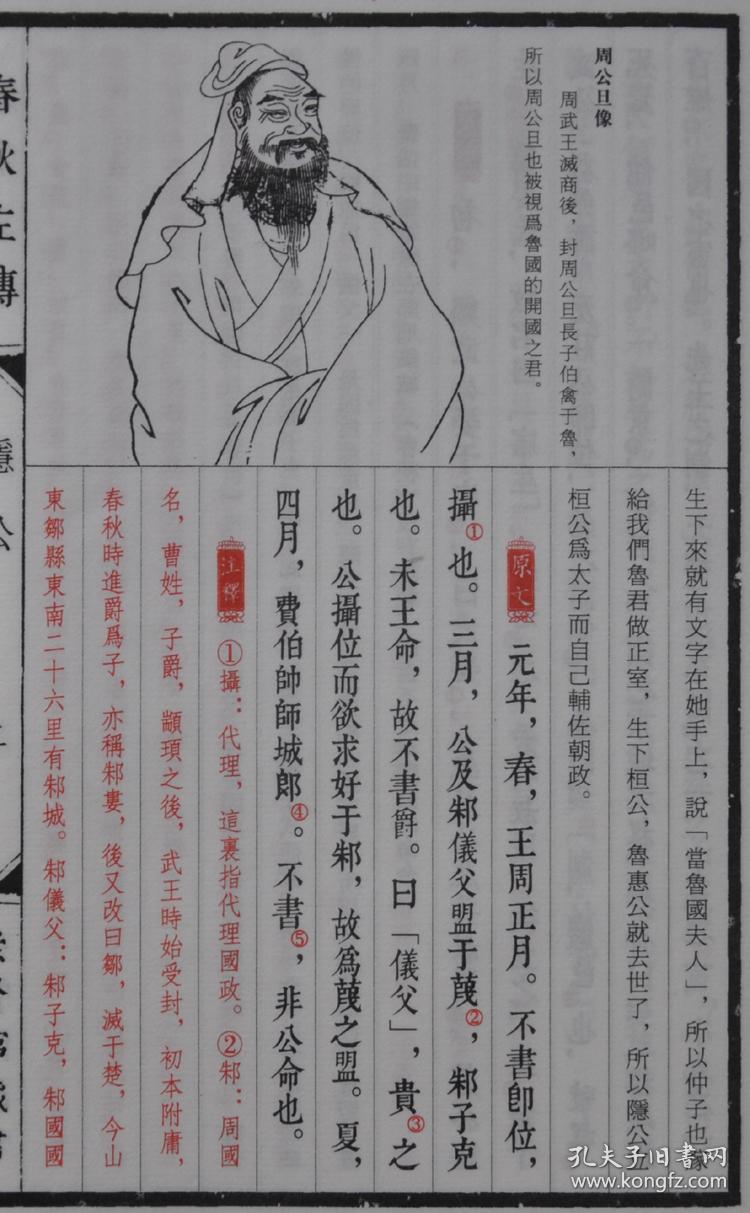 周公旦像
周武王滅商後，封周公旦長子伯禽于魯，
所以周公旦也被視爲魯國的開國之君。
生下來就有文字在她手上，說「當魯國夫人」，所以仲子也嫁
給我們魯君做正室，生下桓公，魯惠公就去世了，所以隱公立
桓公爲太子而自己輔佐朝政。
原文 元年，春，王周正月。不書卽位，
攝①也。三月，公及邾儀父盟于蔑②，邾子克
也。未王命，故不書爵。曰「儀父」，貴③之
也。公攝位而欲求好于邾，故爲蔑之盟。夏，
四月，費伯帥師城郎④。不書⑤，非公命也。
注釋 ①攝：代理，這裏指代理國政。②邾：周國
名，曹姓，子爵，顓頊之後，武王時始受封，初本附庸，
春秋時進爵爲子，亦稱邾婁，後又改曰鄒，滅于楚，今山
東鄒縣東南二十六里有邾城。邾儀父：邾子克，邾國國
春秋左傳
隱公
孔夫子旧书网
www.kongfz.com